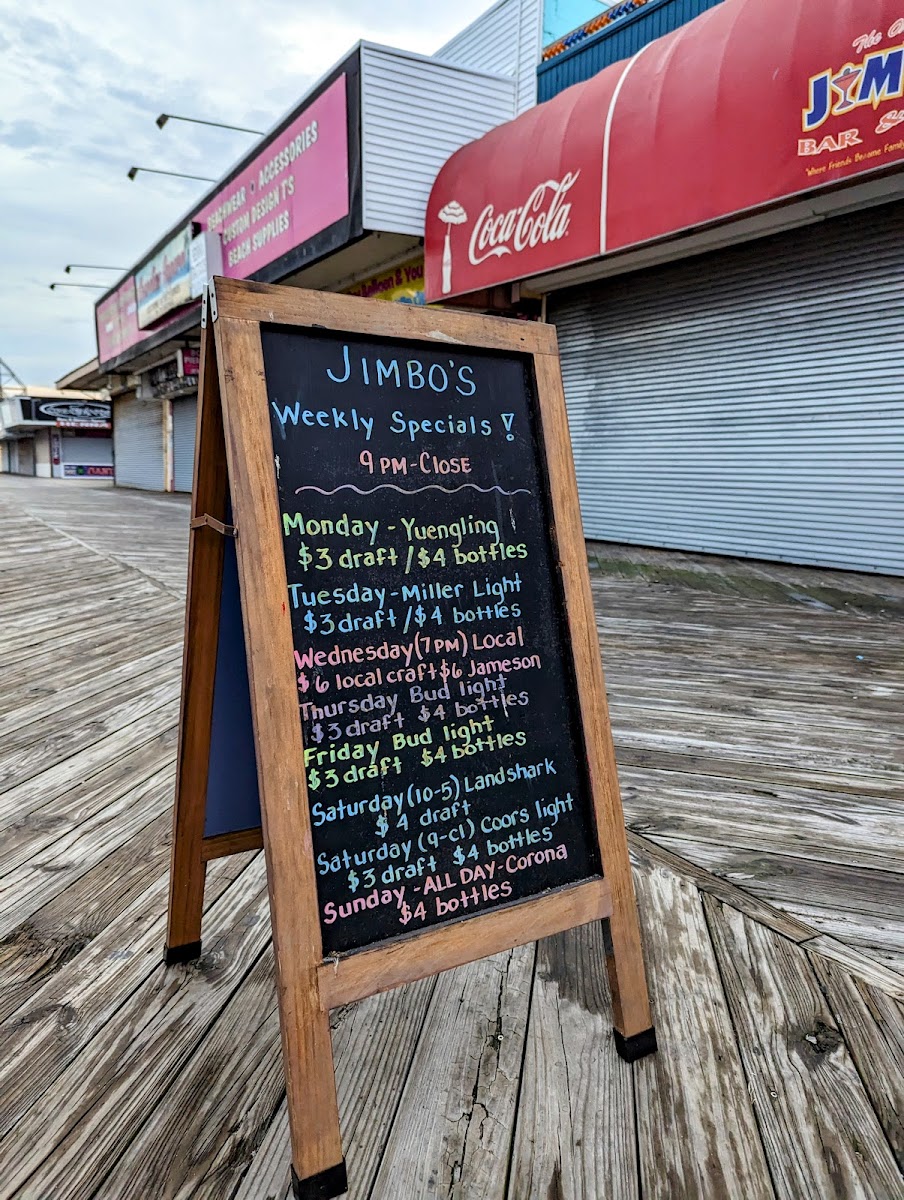 BEACHWEAR ACCESSORIES
CUSTOM DESIGN T'S
BEACH SUPPLIES
Coca-Cola
BAR &
"Where Friends Become Family
JIMBO'S
Weekly Specials!
9PM-CLOSE
Monday - Yuengling
$3 draft / $4 bottles
Tuesday - Miller Light
$3 draft / $4 bottles
Wednesday (7PM) Local
$6 local craft $6 Jameson
Thursday Bud light
$3 draft $4 bottles
Friday Bud light
$3 draft $4 bottles
Saturday (10-5) Landshark
$4 draft
Saturday (9-cl) Coors light
$3 draft $4 bottles
Sunday - ALL DAY - Corona
$4 bottles